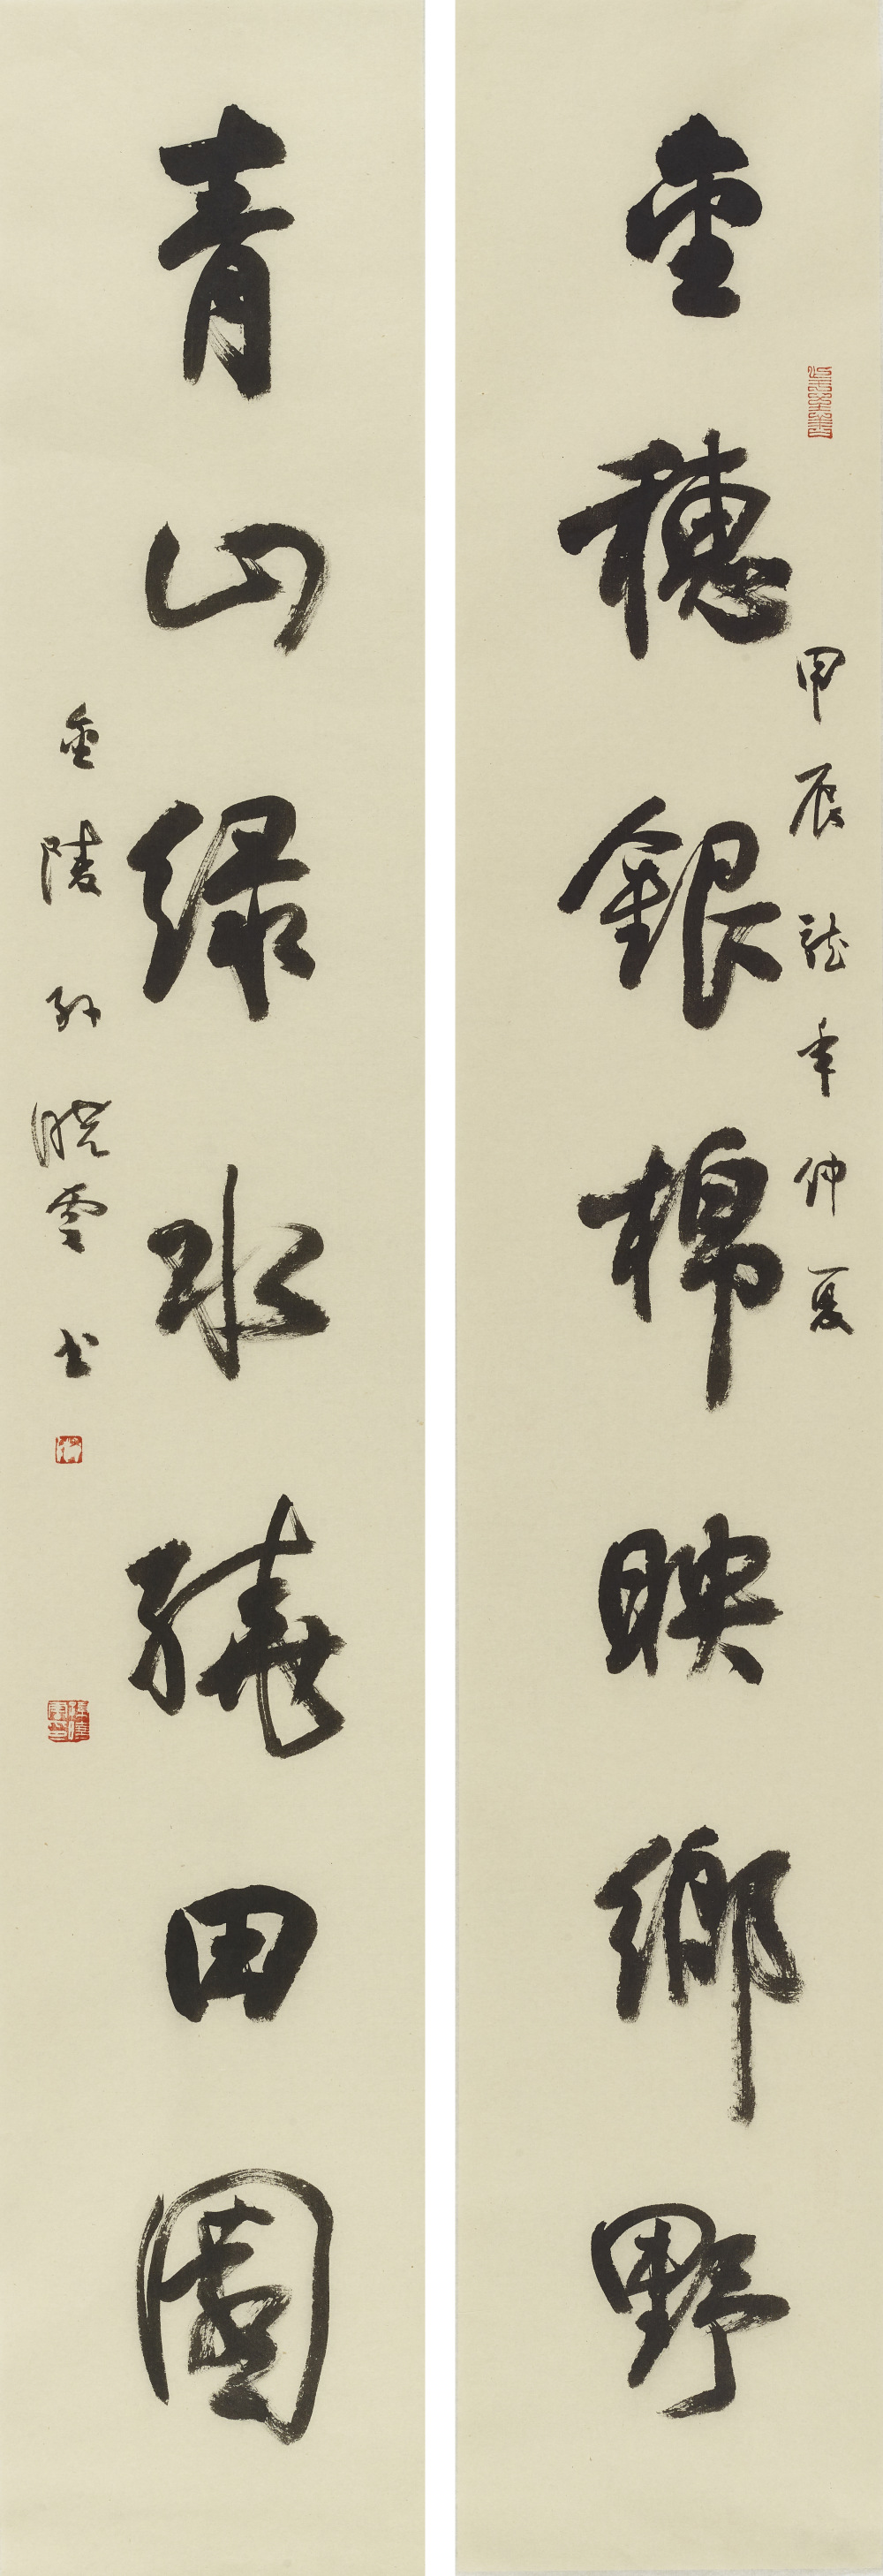 金穗銀棉映鄉野
甲辰龍年仲夏
青山绿水繞田園
金陵孙曉雲书